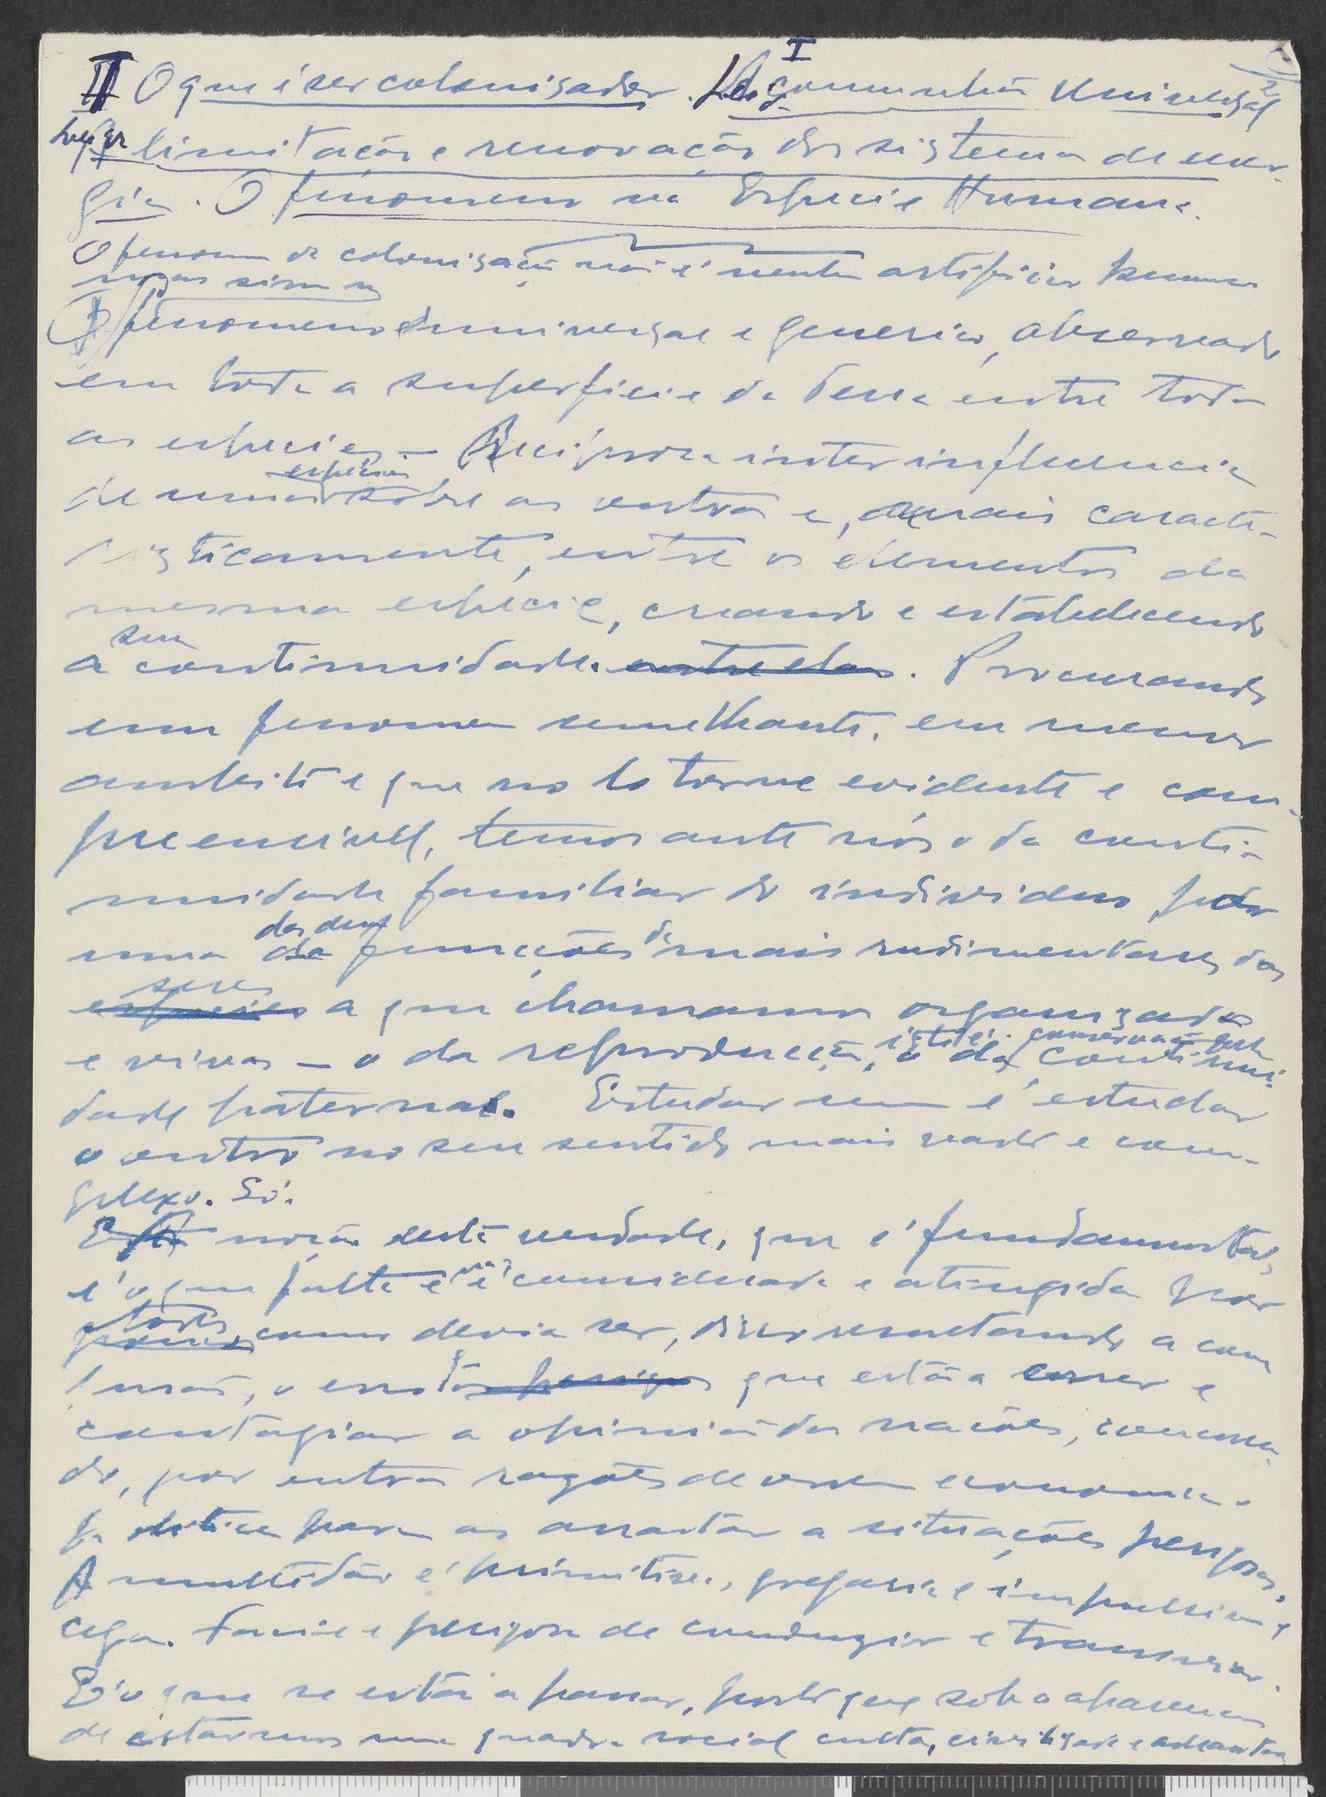 II O que é ser colonisador. I Lei da comunhão universal
limitação e renovação do sistema de ener-
gia. O fenomeno na Especie Humana.
O fenom de colonisação não é nenhum artificio humano
mas sim um
fenomeno universal e generico, observado
em toda a superficie da Terra entre todas
as especies — Reciproca inter influencia
especies
de umas sobre as outras e, mais caracte-
risticamente, entre os elementos da
mesma especie, creando e estabelecendo
sua
a continuidade. entre elas. Procurando
um fenomeno semelhante, em menor
ambito e que no lo torne evidente e com-
preensivel, temos ante nós o da conti-
nuidade familiar do individuo, por
das duas
uma da funcções de mais rudimentares dos
seres
especies a que chamamos organizados
e vivos — o da reproducção, isto é: conservação
o da continui-
dade paternal. Estudar um é estudar
o outro no seu sentido mais vasto e com-
plexo. Só.
E a noção desta verdade, que é fundamental,
é o que falta e não é considerada e atingida por
todos
poucos, como devia ser, disso resultando a con
fusão, o erro perigos que estão a correr e
contagiar a opinião das nações, concorren
do, por outras razões de ordem economica-
politica para as arrastar a situações perigosas.
A multidão é primitiva, gregaria e impulsiva e
cega. Facil e perigosa de conduzir e transviar.
É o que se está a passar, posto que sob a aparencia
de estarmos num quadro social culto, civilizado e adeantado